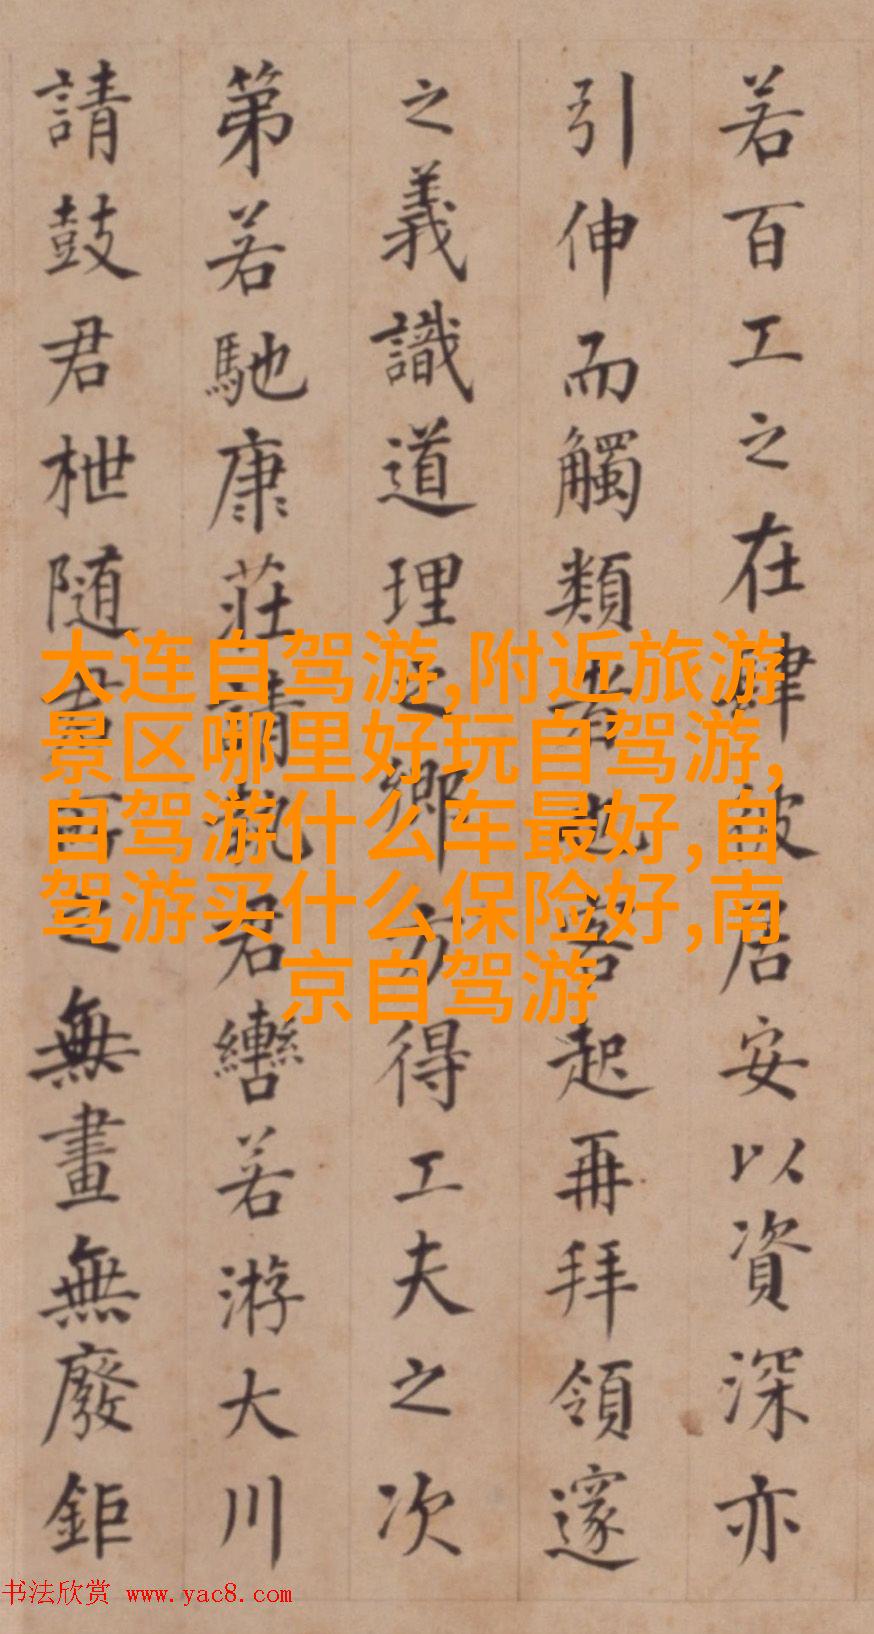 若百工之在肆彼居安以資深亦
引伸而觸類者也客起再拜領邃
之義識道理之鄉方得工夫之次
第若馳康莊請執君轡若游大川
請鼓君枻随君所之無畫無廢鉅
大连自驾游,附近旅游
景区哪里好玩自驾游,
自驾游什么车最好,自
驾游买什么保险好,南
京自驾游
书法欣赏 www.yac8.com